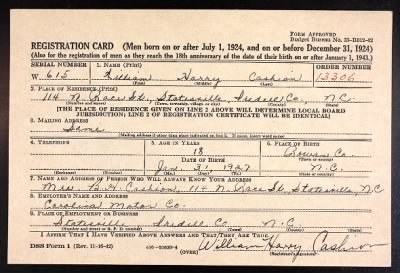 FORM APPROVED
Budget Bureau No. 33-R012-42
REGISTRATION CARD (Men born on or after July 1, 1924, and on or before December 31, 1924)
(Also for the registration of men as they reach the 18th anniversary of the date of their birth on or after January 1, 1943.)
SERIAL NUMBER 1. NAME (Print) ORDER NUMBER
W 615 William Harry Cashion 13306
(First) (Middle) (Last)
2. PLACE OF RESIDENCE (Print)
114 N. Race St., Statesville, Iredell Co., N.C.
(Number and street) (Town, township, village or city) (County) (State)
[THE PLACE OF RESIDENCE GIVEN ON LINE 2 ABOVE WILL DETERMINE LOCAL BOARD
JURISDICTION; LINE 2 OF REGISTRATION CERTIFICATE WILL BE IDENTICAL]
3. MAILING ADDRESS
Same
[Mailing address if other than place indicated on line 2. If same, insert word same]
4. TELEPHONE 5. AGE IN YEARS 6. PLACE OF BIRTH
18 Rowan Co.
DATE OF BIRTH (Town or county)
Jan. 31 1927 N.C.
(Exchange) (Number) (Mo.) (Day) (Yr.) (State or country)
7. NAME AND ADDRESS OF PERSON WHO WILL ALWAYS KNOW YOUR ADDRESS
Mrs. B. H. Cashion, 114 N. Race St, Statesville, N.C
8. EMPLOYER'S NAME AND ADDRESS
Carolina Motor Co.
9. PLACE OF EMPLOYMENT OR BUSINESS
Statesville Iredell Co N.C.
(Number and street or R. F. D. number) (Town) (County) (State)
I AFFIRM THAT I HAVE VERIFIED ABOVE ANSWERS AND THAT THEY ARE TRUE.
DSS Form 1 (Rev. 11-16-42) (OVER) William Harry Cashion
(Registrant's signature)